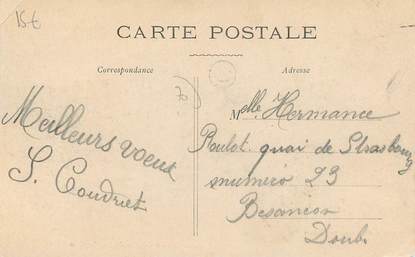 15€
CARTE POSTALE
Correspondance
Adresse
Meilleurs voeux
S. Coudriet
Melle Hermance
Roulot quai de Strasbourg
numéro 23
Besançon
Doubs